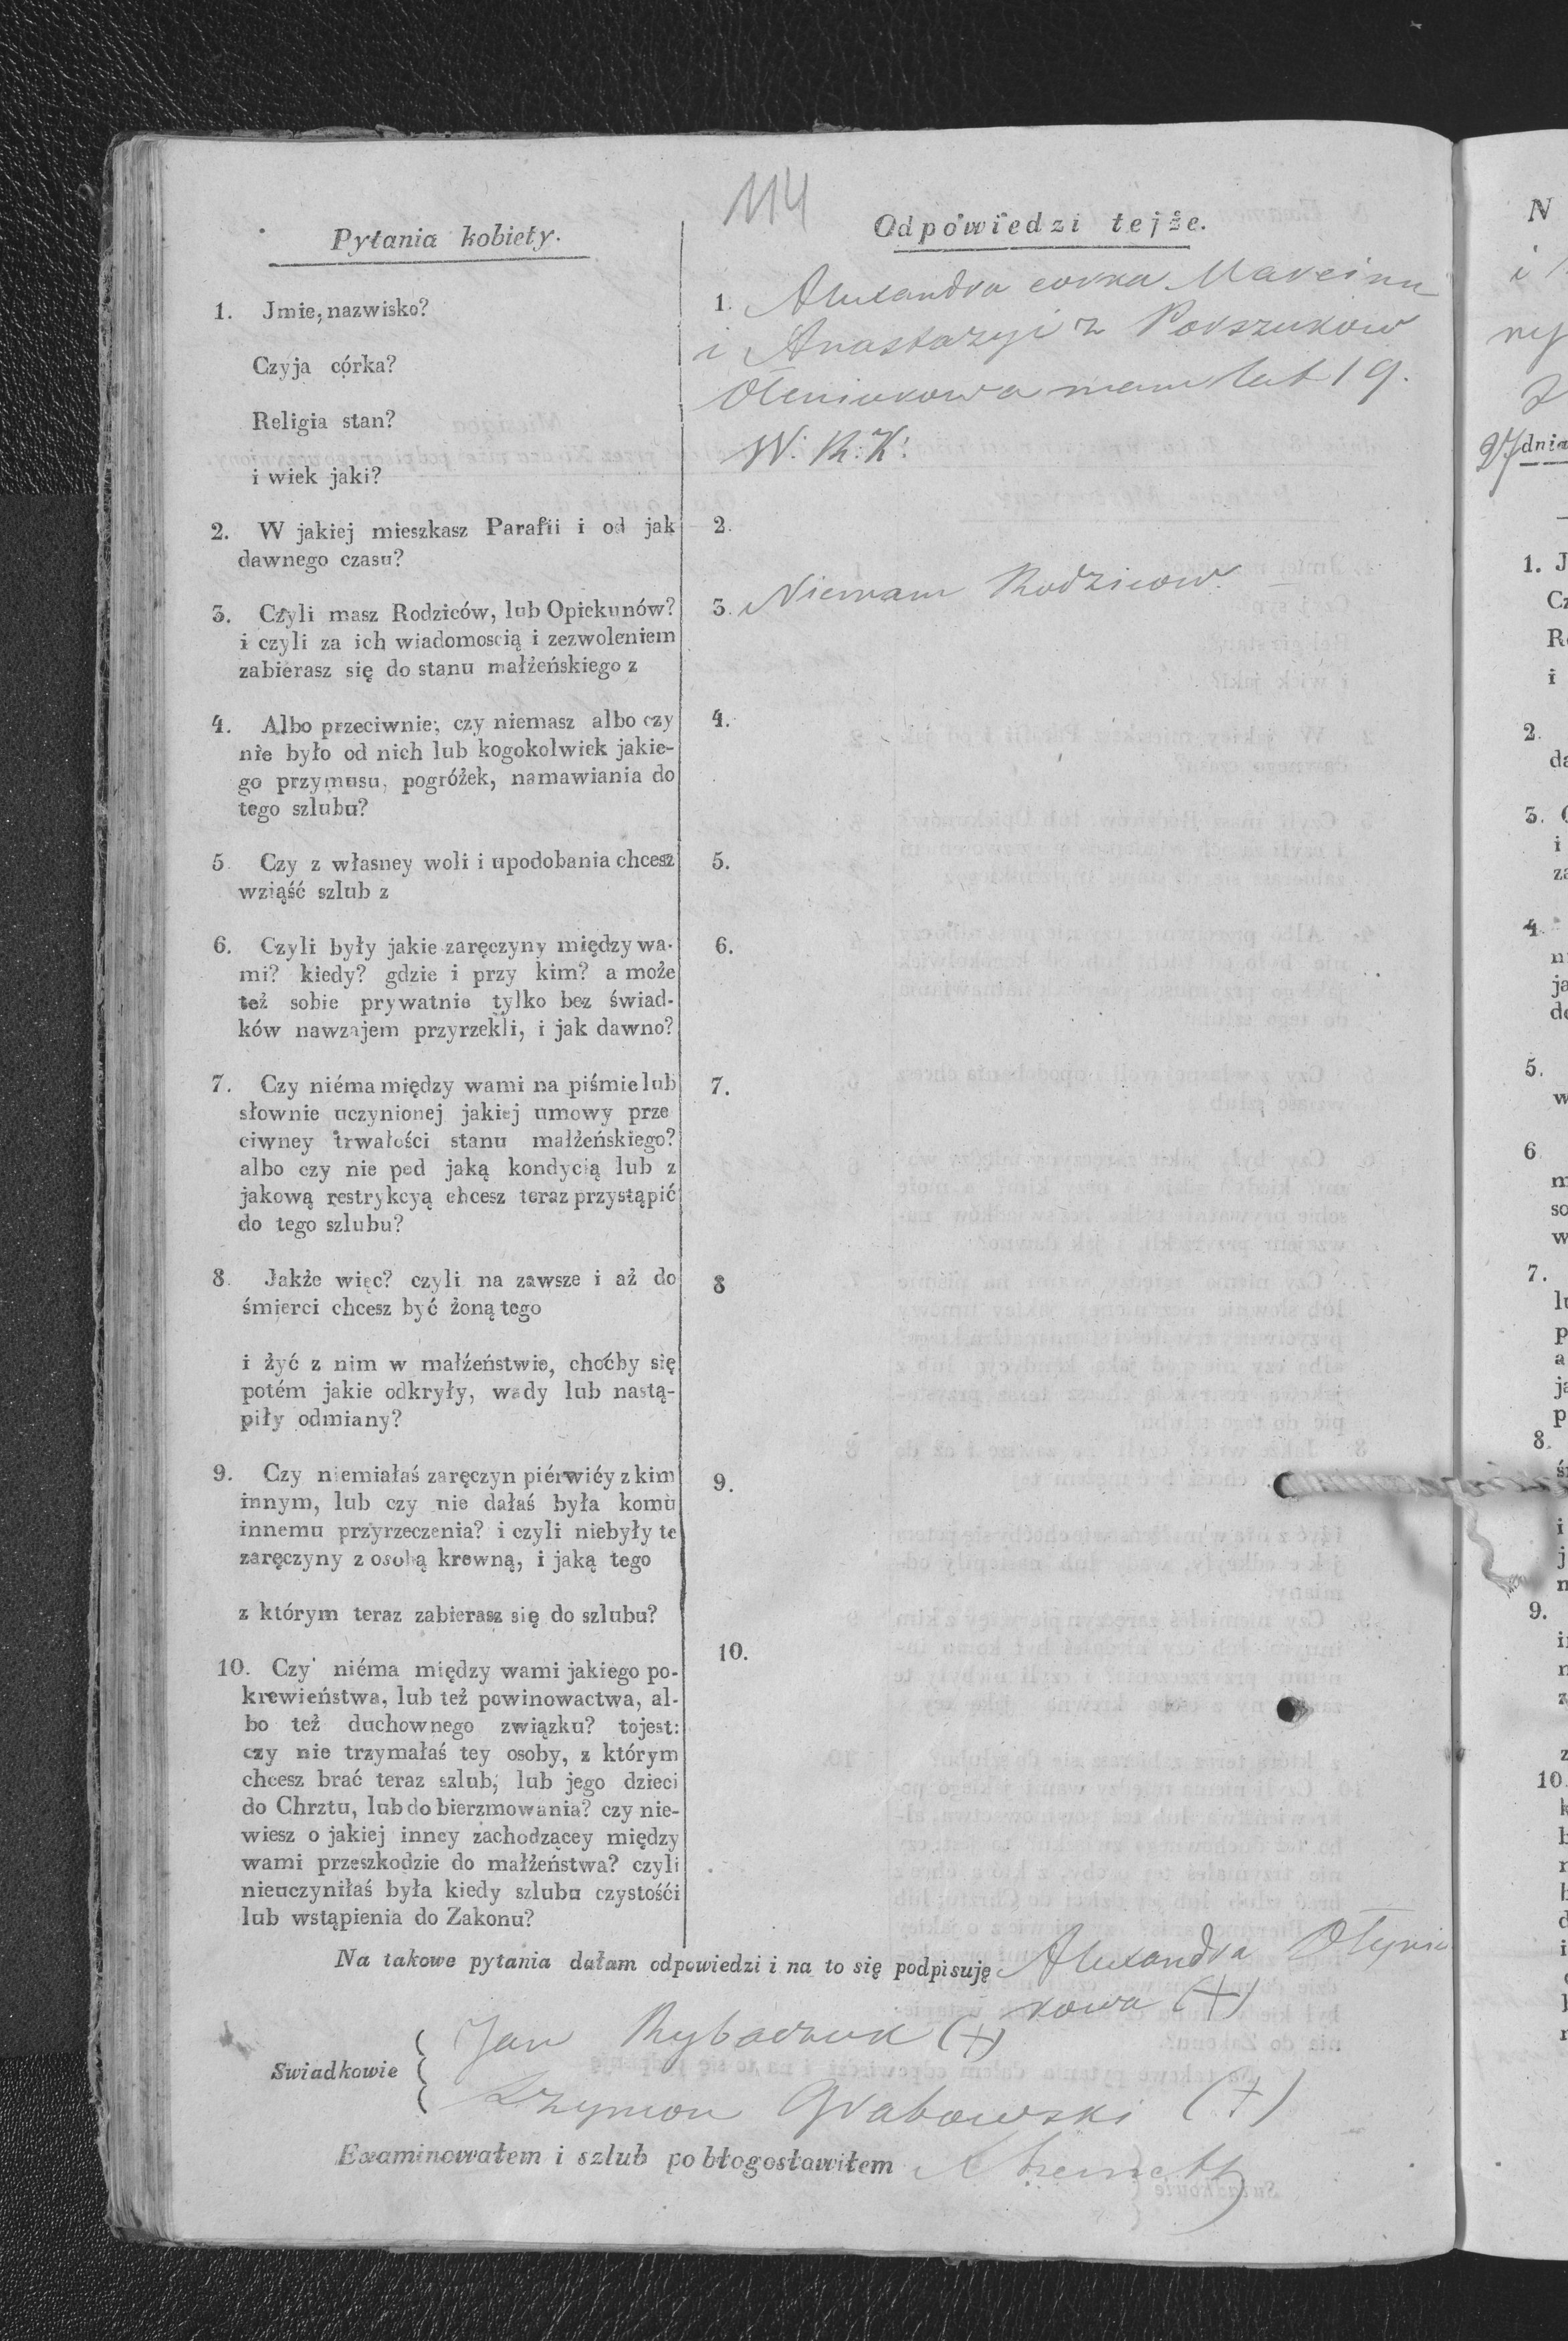 114
Pytania kobiety.
Odpowiedzi tejże.
1. Jmie, nazwisko?
Czyja córka?
Religia stan?
i wiek jaki?
1. Alexandra corka Marcina
i Anastazyi z Porszukow
Oleniukowa mam lat 19.
W: R: K:
2. W jakiej mieszkasz Parafii i od jak
dawnego czasu?
2.
3. Czyli masz Rodziców, lub Opiekunów?
i czyli za ich wiadomoscią i zezwoleniem
zabierasz się do stanu małżeńskiego z
3. Niemam Rodzicow
4. Albo przeciwnie; czy niemasz albo czy
nie było od nich lub kogokolwiek jakie-
go przymusu, pogróżek, namawiania do
tego szlubu?
4.
5 Czy z własney woli i upodobania chcesz
wziąść szlub z
5.
6. Czyli były jakie zaręczyny między wa-
mi? kiedy? gdzie i przy kim? a może
też sobie prywatnie tylko bez świad-
ków nawzajem przyrzekli, i jak dawno?
6.
7. Czy niéma między wami na piśmie lub
słownie uczynionej jakiej umowy prze
ciwney trwałości stanu małżeńskiego?
albo czy nie pod jaką kondycią lub z
jakową restrykcyą chcesz teraz przystąpić
do tego szlubu?
7.
8. Jakże więc? czyli na zawsze i aż do
śmierci chcesz być żoną tego
i żyć z nim w małżeństwie, choćby się
potém jakie odkryły, wady lub nastą-
piły odmiany?
8
9. Czy niemiałaś zaręczyn piérwiéy z kim
innym, lub czy nie dałaś była komu
innemu przyrzeczenia? i czyli niebyły te
zaręczyny z osobą krewną, i jaką tego
z którym teraz zabierasz się do szlubu?
9.
10. Czy niéma między wami jakiego po-
krewieństwa, lub też powinowactwa, al-
bo też duchownego związku? tojest:
czy nie trzymałaś tey osoby, z którym
chcesz brać teraz szlub, lub jego dzieci
do Chrztu, lub do bierzmowania? czy nie-
wiesz o jakiej inney zachodzącey między
wami przeszkodzie do małżeństwa? czyli
nieuczyniłaś była kiedy szlubu czystośći
lub wstąpienia do Zakonu?
10.
Na takowe pytania dałam odpowiedzi i na to się podpisuję Alexandra Olyniu
kowa (+)
Swiadkowie
Jan Rybaczuk (+)
Szymon Grabowski (+)
Examinowałem i szlub pobłogosławiłem